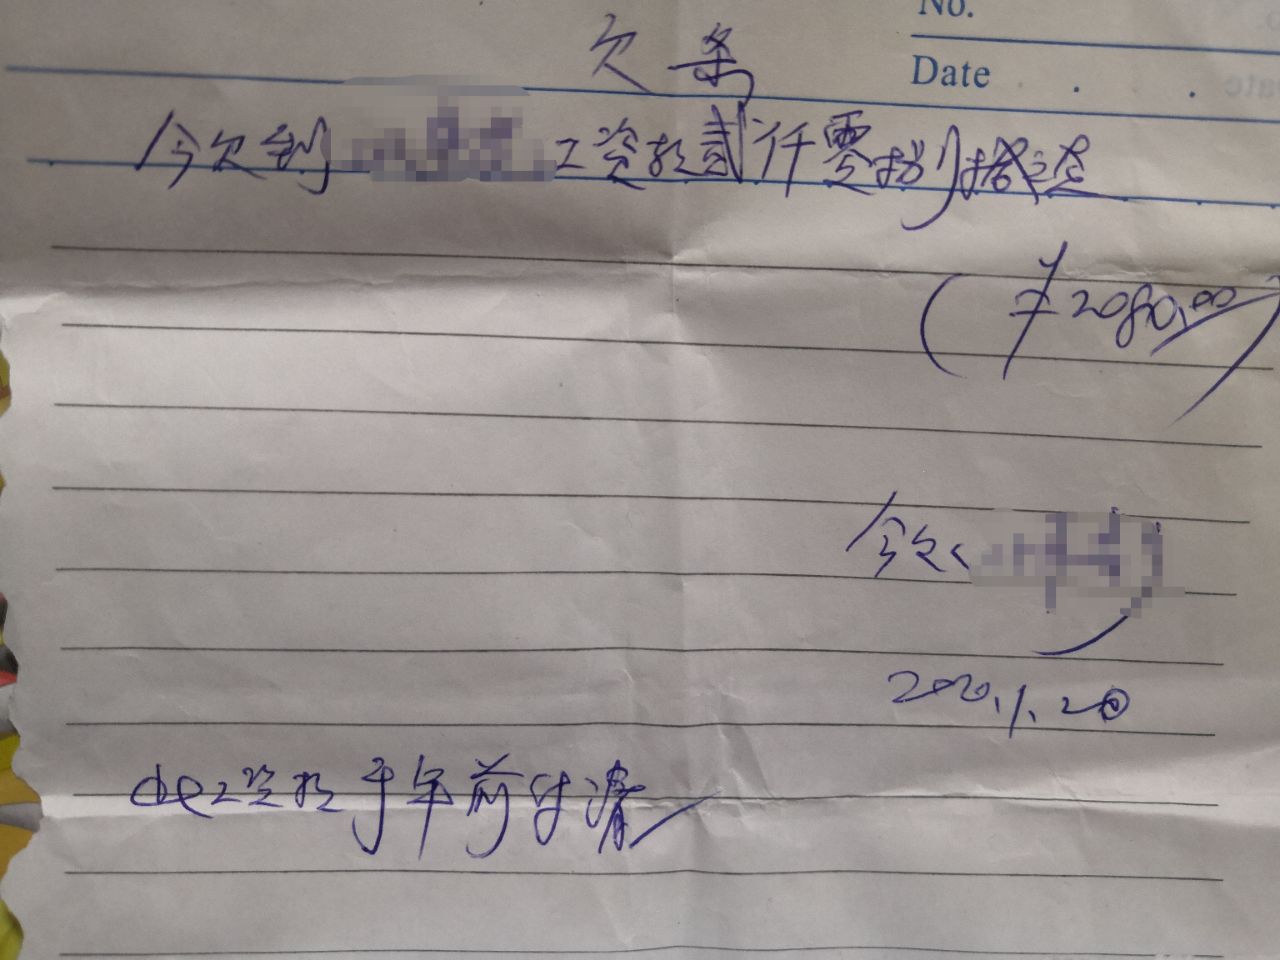 No.
欠条
Date
今欠到 工资款贰仟零捌拾元
(¥2080.00)
今欠人
2020.1.20
此工资款于年前付清